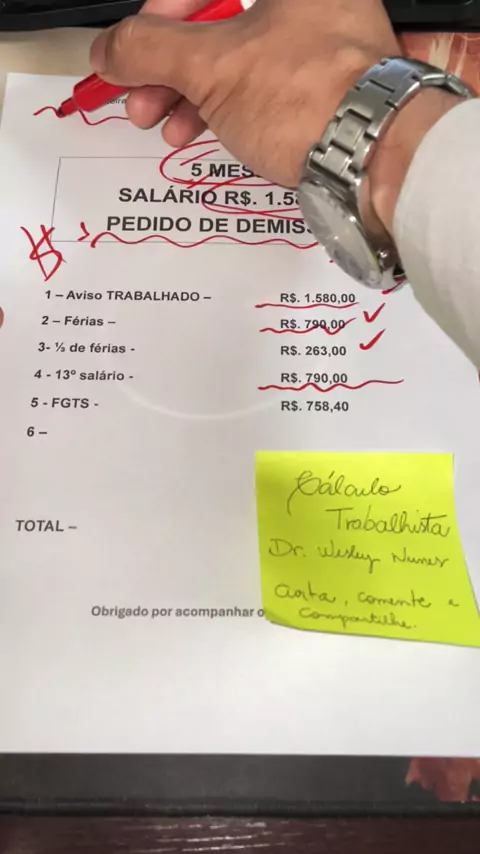 5 MES
SALÁRIO R$. 1.58
PEDIDO DE DEMIS
1 – Aviso TRABALHADO – R$. 1.580,00
2 – Férias – R$. 790,00
3- ⅓ de férias - R$. 263,00
4 - 13º salário - R$. 790,00
5 - FGTS - R$. 758,40
6 –
TOTAL –
Obrigado por acompanhar o
Cálculo
Trabalhista
Dr. Wesley Nunes
Curta, comente e
compartilhe.